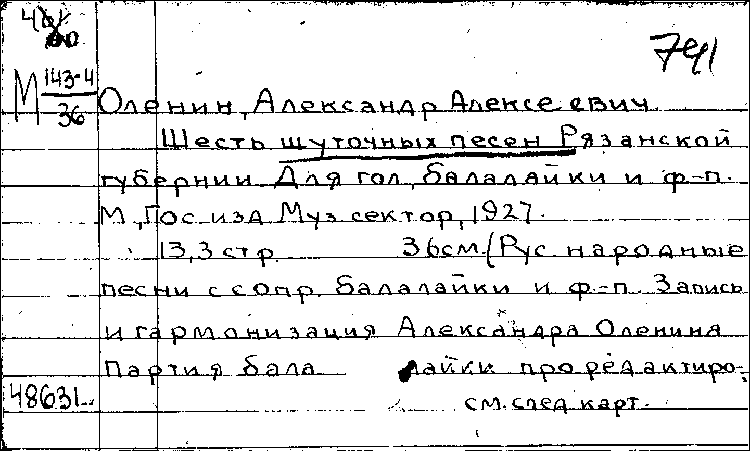 741
М 143-4
36
Оленин, Александр Алексеевич
Шесть шуточных песен Рязанской
губернии Для гол, балалайки и ф-п.
М, Гос. изд Муз сектор, 1927.
13,3 стр. 36см. (Рус. народные
песни с сопр. балалайки и ф-п. Запись
и гармонизация Александра Оленина
Партия бала лайки проредактиро-
48631.
см. след карт.